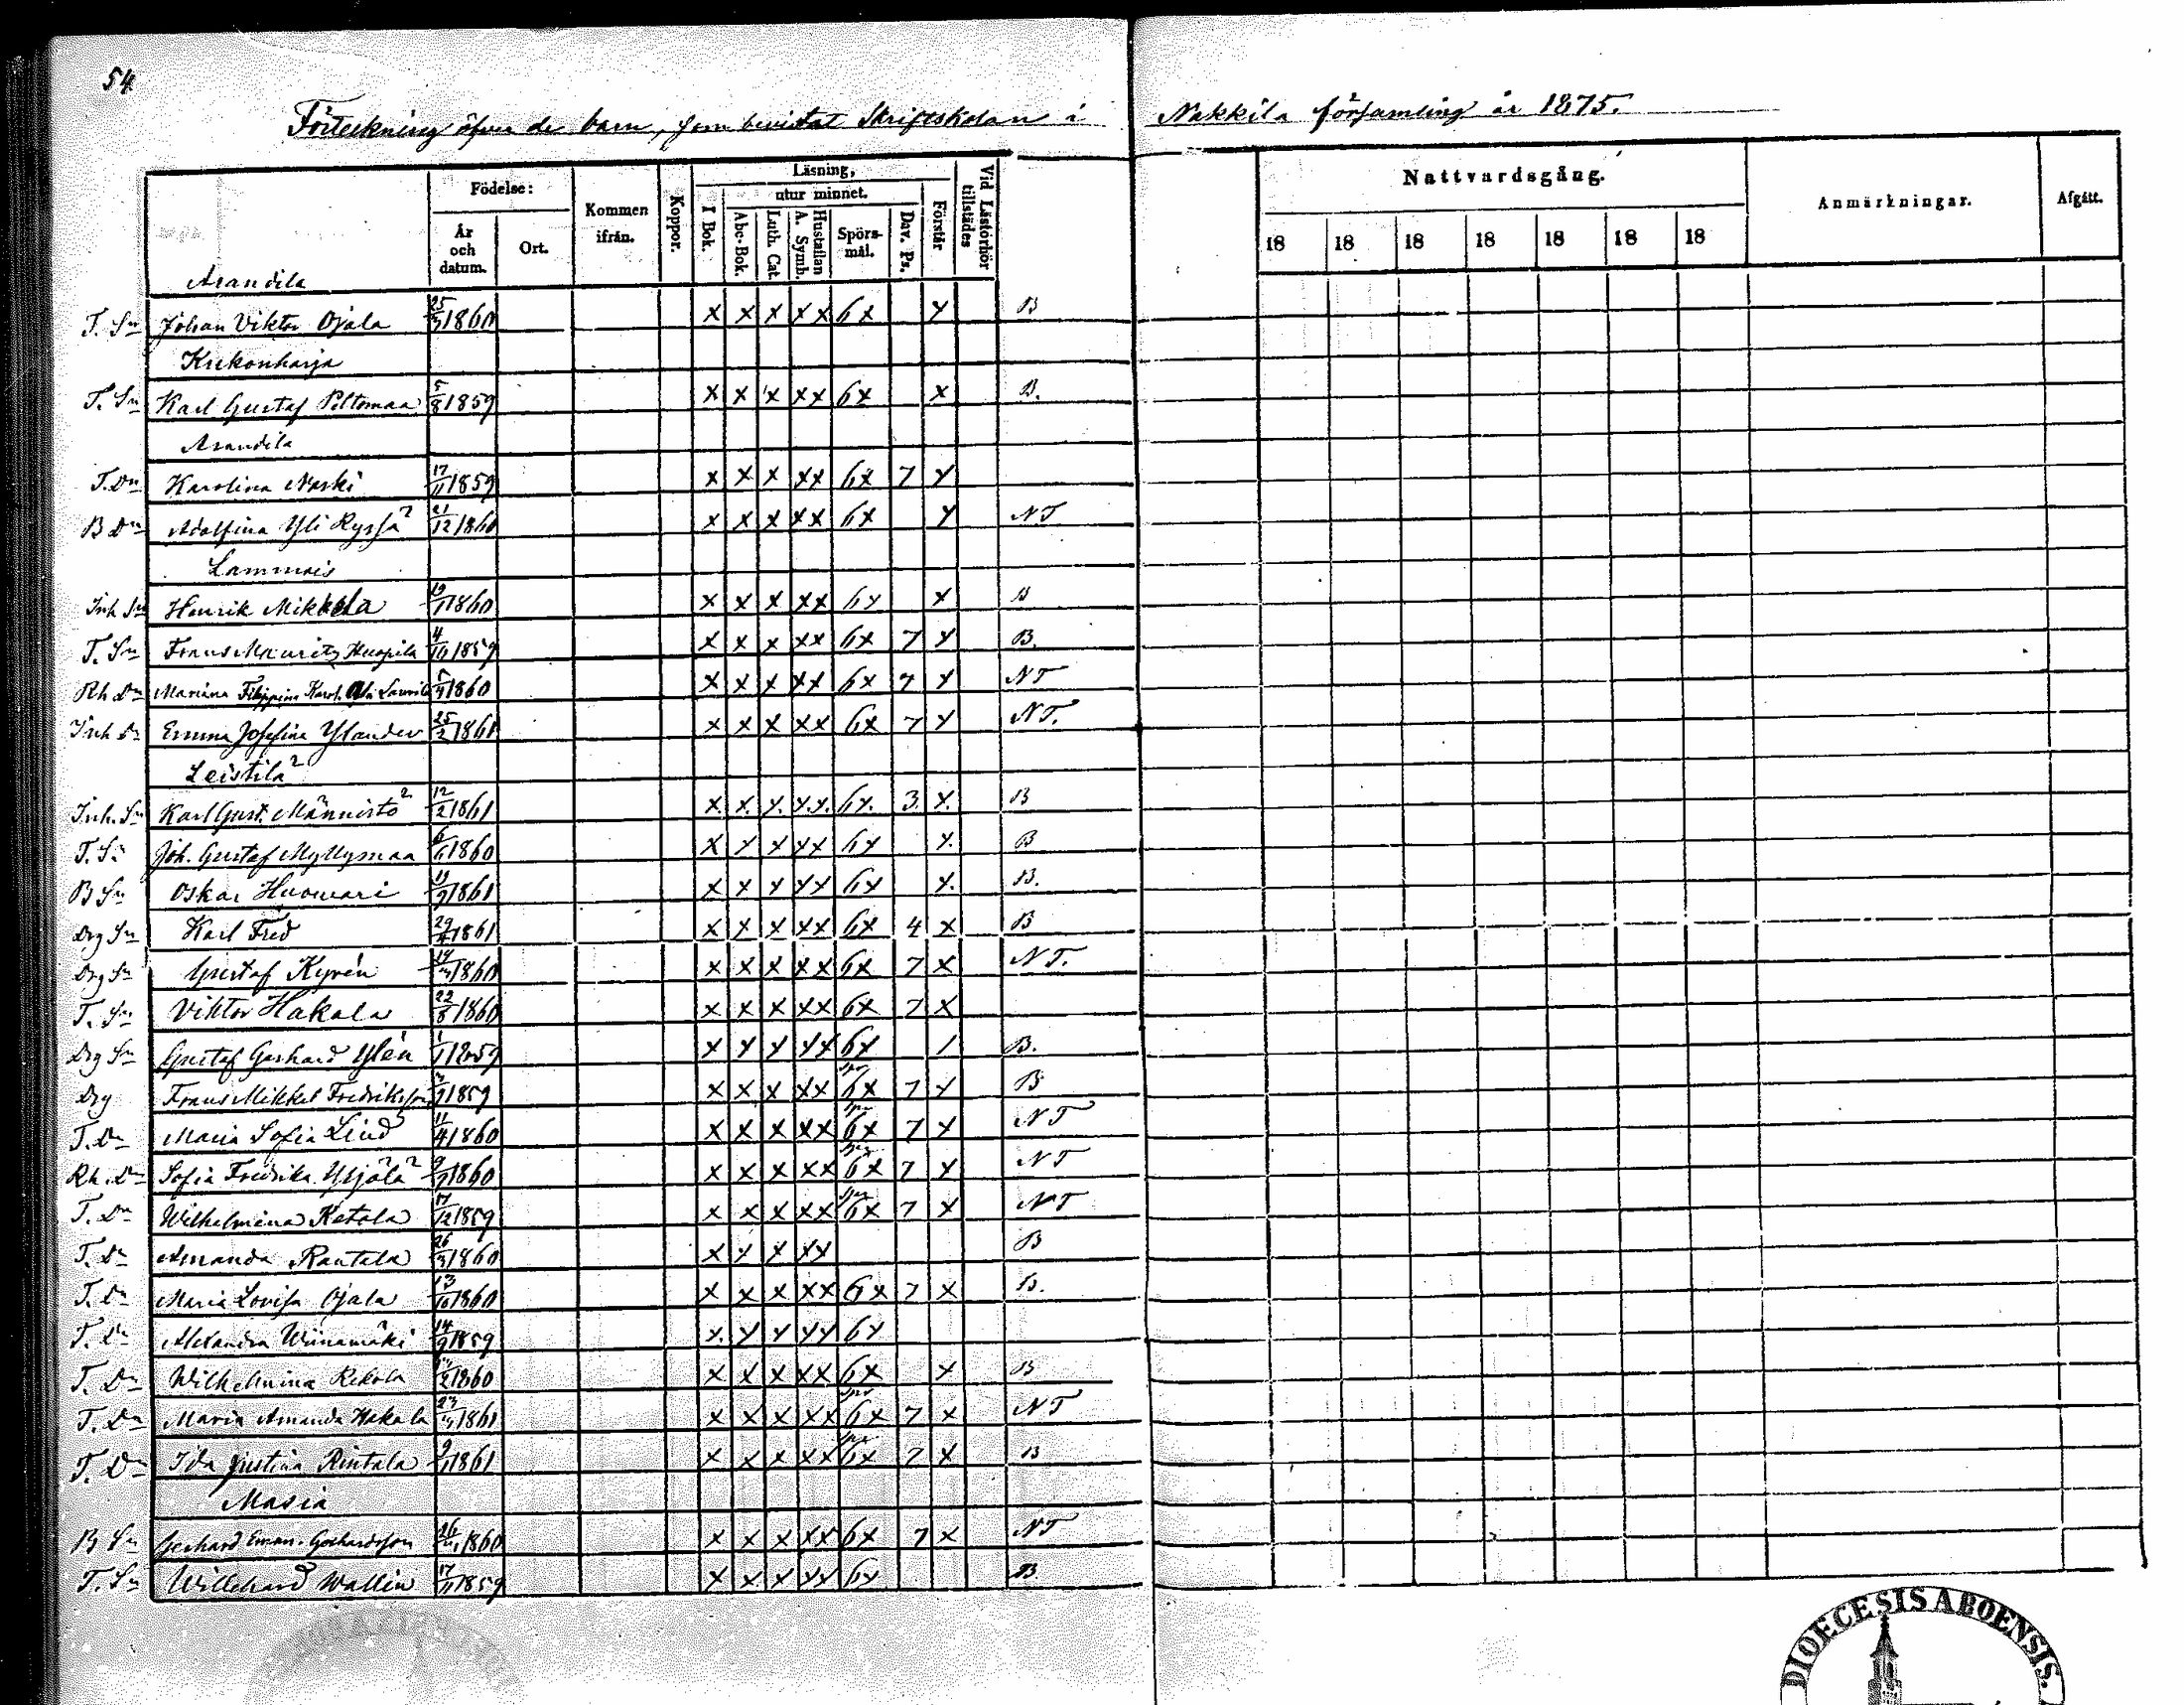 54
Förteckning öfver de barn, som bevistat Skriftskolan i Nakkila församling år 1875.
Födelse: Kommen ifrån. Koppor. Läsning, utur minnet. Vid Läsförhör tillstädes Nattvardsgång. Anmärkningar. Afgått.
År och datum. Ort. I Bok. Abc-Bok. Luth. Cat. Hustaflan A. Symb. Spörs-mål. Dav. Ps. Förstår 18 18 18 18 18 18 18
Arandila
T. Sn Johan Viktor Ojala 25/3 1860 x x x x x 6x x B
Kukonharja
T. Sn Karl Gustaf Peltomaa 5/8 1859 x x x x x 6x x B.
Arandila
T. Dn Karolina Naski 17/11 1859 x x x x x 6x 7 x
B Dn Adolfina Yli Ryssä 21/12 1860 x x x x x 6x x NT
Lammais
Inh Sn Henrik Mikkola 1860 x x x x x 6x x B
T. Sn Frans Mauritz Huopila 4/10 1859 x x x x x 6x 7 x B.
Rh Dn Mariana Filippina Karol. 1860 x x x x x 6x 7 x NT
Inh Dn Emma Josefina Ylander 25/2 1861 x x x x x 6x 7 x NT.
Leistilä
Inh. Sn Karl Gust. Männistö 12/2 1861 x x x x x 6x. 3. x. B
T. Sn Joh. Gustaf Myllymaa 1860 x x x x x 6x x. B
B Sn Oskar Huowari 1861 x x x x x 6x x. B.
Drg Sn Karl Fred 29/4 1861 x x x x x 6x 4 x B
Drg Sn Gustaf Kyrén 1860 x x x x x 6x 7 x NT.
T. Sn Viktor Hakala 22/8 1860 x x x x x 6x 7 x
Drg Sn Gustaf Gerhard Ylén 1/1 1859 x x x x x 6x / B.
Drg Frans Mikkel Fredriksson 1859 x x x x x 6x 7 x B
T. Dn Maria Sofia Lind 11/4 1860 x x x x x 6x 7 x NT
Rh. Dn Sofia Fredrika Ylijälä 1860 x x x x x 6x 7 x NT
T. Dn Wilhelmina Ketola 17/12 1859 x x x x x 6x 7 x NT
T. Dn Amanda Rautala 26/3 1860 x x x x x B
T. Dn Maria Lovisa Ojala 13/10 1860 x x x x x 6x 7 x B.
T. Dn Alexandra Wiinamäki 14/9 1859 x. x x x x 6x
T. Dn Wilhelmina Rekola 1860 x x x x x 6x x B
T. Dn Maria Amanda Hakala 23/3 1861 x x x x x 6x 7 x NT
T. Dn Ida Justina Rintala 9/1 1861 x x x x x 6x 7 x B
Masia
B Sn Gerhard Eman. Gerhardsson 1860 x x x x x 6x 7 x NT
T. Sn Willehard Wallin 17/11 1859 x x x x x 6x B.
DIOECESIS ABOENSIS.